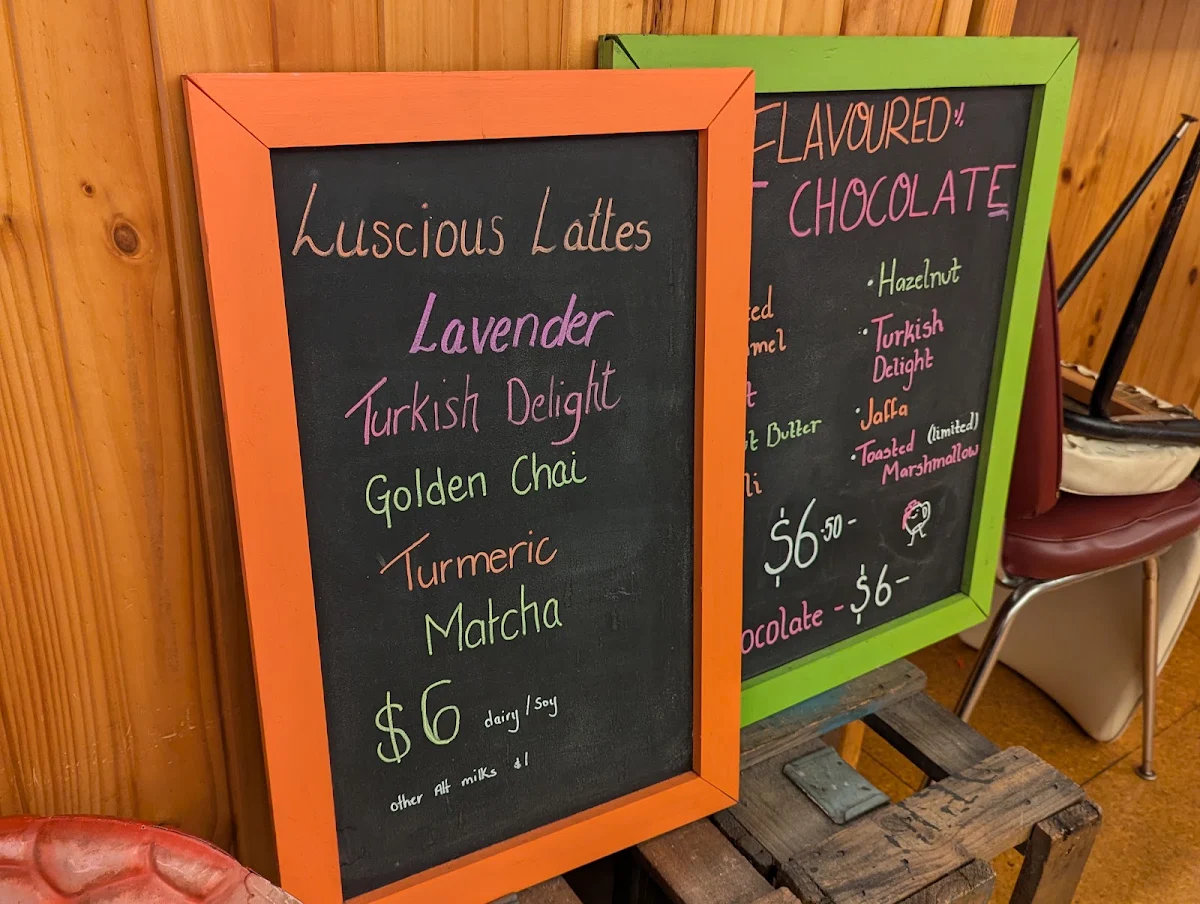 Luscious Lattes
Lavender
Turkish Delight
Golden Chai
Turmeric
Matcha
$6 dairy/Soy
other Alt milks $1
FLAVOURED
CHOCOLATE
• Hazelnut
• Turkish
Delight
• Jaffa
• Toasted (limited)
Marshmallow
Butter
$6.50-
- $6-